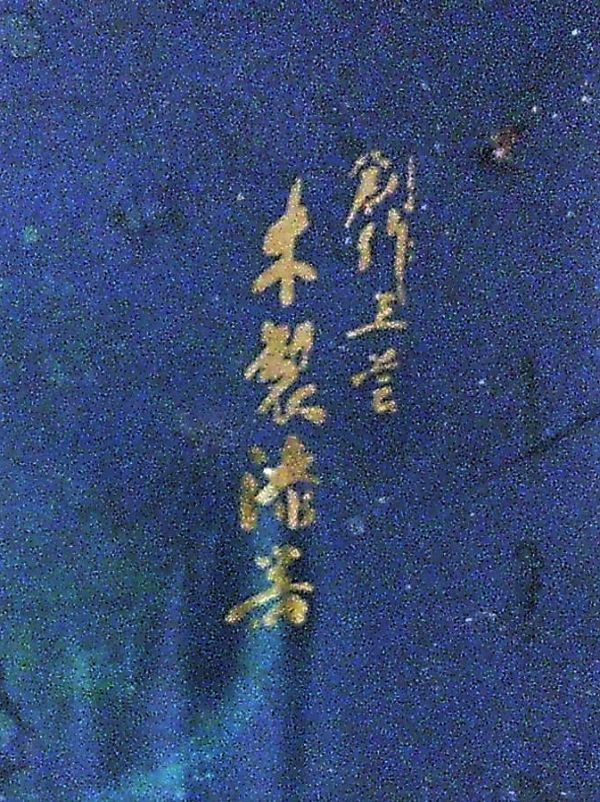 創作工芸
木製漆器